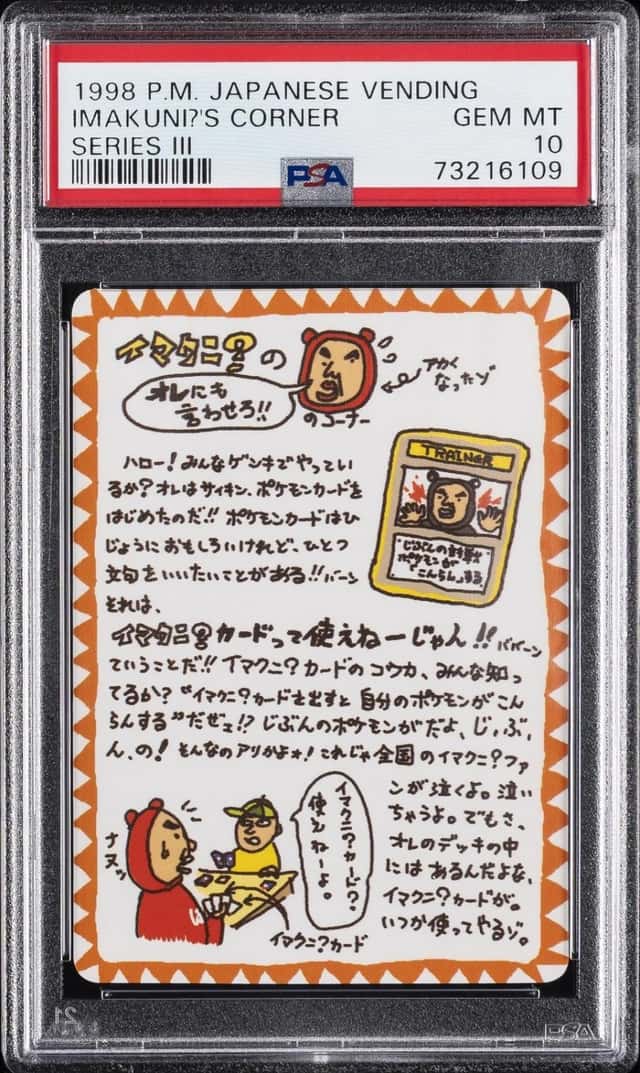 1998 P.M. JAPANESE VENDING
IMAKUNI?'S CORNER GEM MT
SERIES III 10
PSA 73216109
イマクニ?の
オレにも
言わせろ!!
のコーナー
アカく
なったゾ
ハロー!みんなゲンキでやってい
るか?オレはサイキン、ポケモンカードを
はじめたのだ!!ポケモンカードはひ
じょうにおもしろいけれど、ひとつ
文句をいいたいことがある!!バーン
それは、
TRAINER
じぶんの対戦
ポケモンが
「こんらん」する。
イマクニ?カードって使えねーじゃん!!ババーン
ていうことだ!!イマクニ?カードのコウカ、みんな知っ
てるか?"イマクニ?カードを出すと自分のポケモンがこん
らんする"だぜェ!?じぶんのポケモンがだよ、じ、ぶ、
ん、の!そんなのアリかよォ!これじゃ全国のイマクニ?ファ
ンが泣くよ。泣い
ちゃうよ。でもさ、
オレのデッキの中
にはあるんだよな、
イマクニ?カードが。
いつか使ってやるゾ。
イマクニ?カード?
使えねーよ。
ナヌッ
イマクニ?カード
PSA